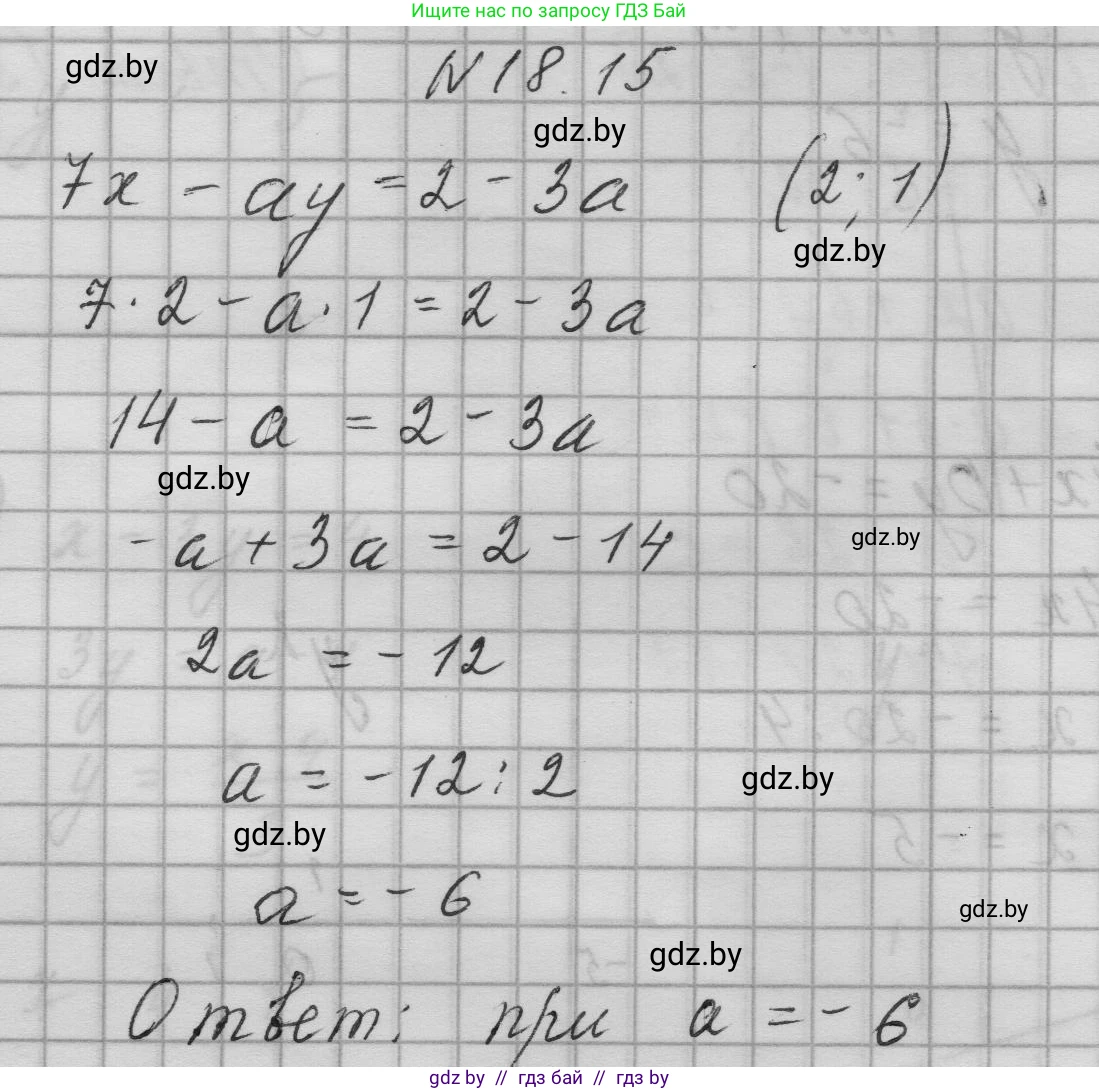 Ищите нас по запросу ГДЗ Бай
gdz.by
N 18.15
gdz.by
7x - ay = 2 - 3a (2; 1)
gdz.by
7 · 2 - a · 1 = 2 - 3a
14 - a = 2 - 3a
gdz.by
- a + 3a = 2 - 14
gdz.by
2a = - 12
a = - 12 : 2
gdz.by
gdz.by
a = - 6
gdz.by
gdz.by
Ответ: при a = - 6
gdz.by // гдз бай // гдз by